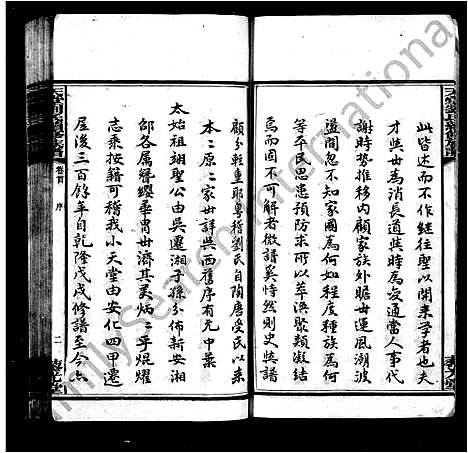 此皆述而不作継往聖以開来学者也夫
才與丗為消長道與時為友通當人事代
謝時势推移内顧家族外賑丗運風潮波
盪間忽不知家國為何如程度種族為何
等平民思患預防求所以萃渙聚類凝結
焉而固不可解者微譜奚恃然則史與譜
顧分軽重耶粤稽劉氏自陶唐受氏以来
本二原二家丗詳與西舊序有元中葉
太始祖翊聖公由吳遷湘子孫分佈新安湘
邵各属簪纓畢胄丗濟其美炳二乎焜耀
志乘按籍可稽我小天堂由安化四甲遷
居後三百餘年自乾隆戊戌修譜至今六
卷首
序
二
FamilySearch International